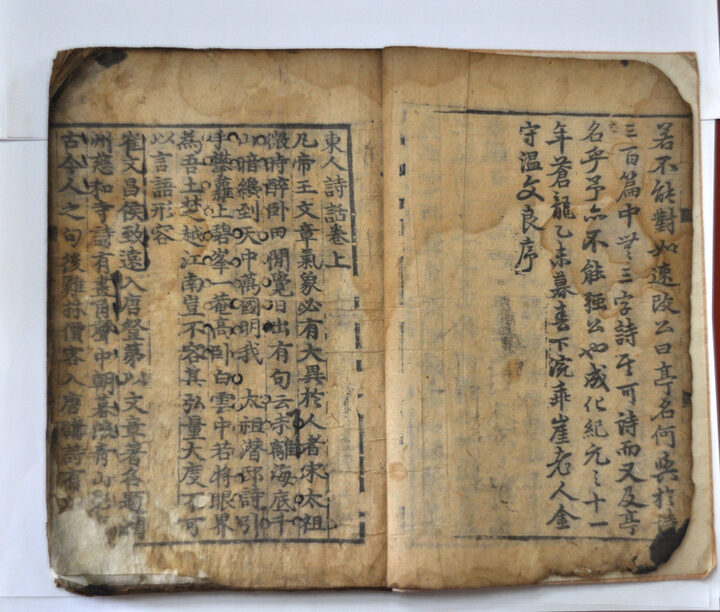 若不能對如速改公曰亭名何與於詩
三百篇中無三字詩至可詩而又及亭
名乎予亦不能強公也成化紀元之十一
年蒼龍乙未暮春下浣乖崖老人金
守溫文良序
東人詩話卷上
凡帝王文章氣象必有大異於人者宋太祖
微時醉卧田間覺日出有句云未離海底千
山暗纔到天中萬國明我 太祖潛邸詩引
手攀蘿上碧峯一菴高卧白雲中若將眼界
為吾土楚越江南豈不容其弘量大度不可
以言語形容
崔文昌侯致遠入唐登第以文章著名題潤
州慈和寺詩有畫角聲中朝暮浪青山影
古今人之句後雞林賈客入唐購詩有